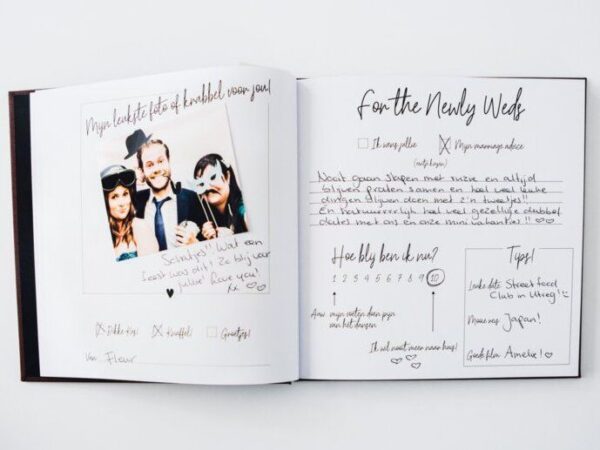 Mijn leukste foto of krabbel voor jou!
Schatjes!! Wat een
feest was dit! Zo blij voor
jullie! Love you!
xx ♡♡
Dikke kus! Knuffel! Groetjes!
Van Fleur
For the Newly Weds
Ik wens jullie Mijn marriage advice
Nooit gaan slapen met ruzie en altijd
blijven praten samen en heel veel leuke
dingen blijven doen met z'n tweetjes!!
En natuurrrrlijk heel veel gezellige dubbel
dates met ons en onze mini vakanties!! ♡♡
Hoe blij ben ik nu?
1 2 3 4 5 6 7 8 9 10
Auw, mijn voeten doen pijn
van het dansen
Ik wil nooit meer naar huis!
Tips!
Leuke date: Street food
Club in Utreg!
Mooie reis: Japan!
Goede film: Amelie! ♡